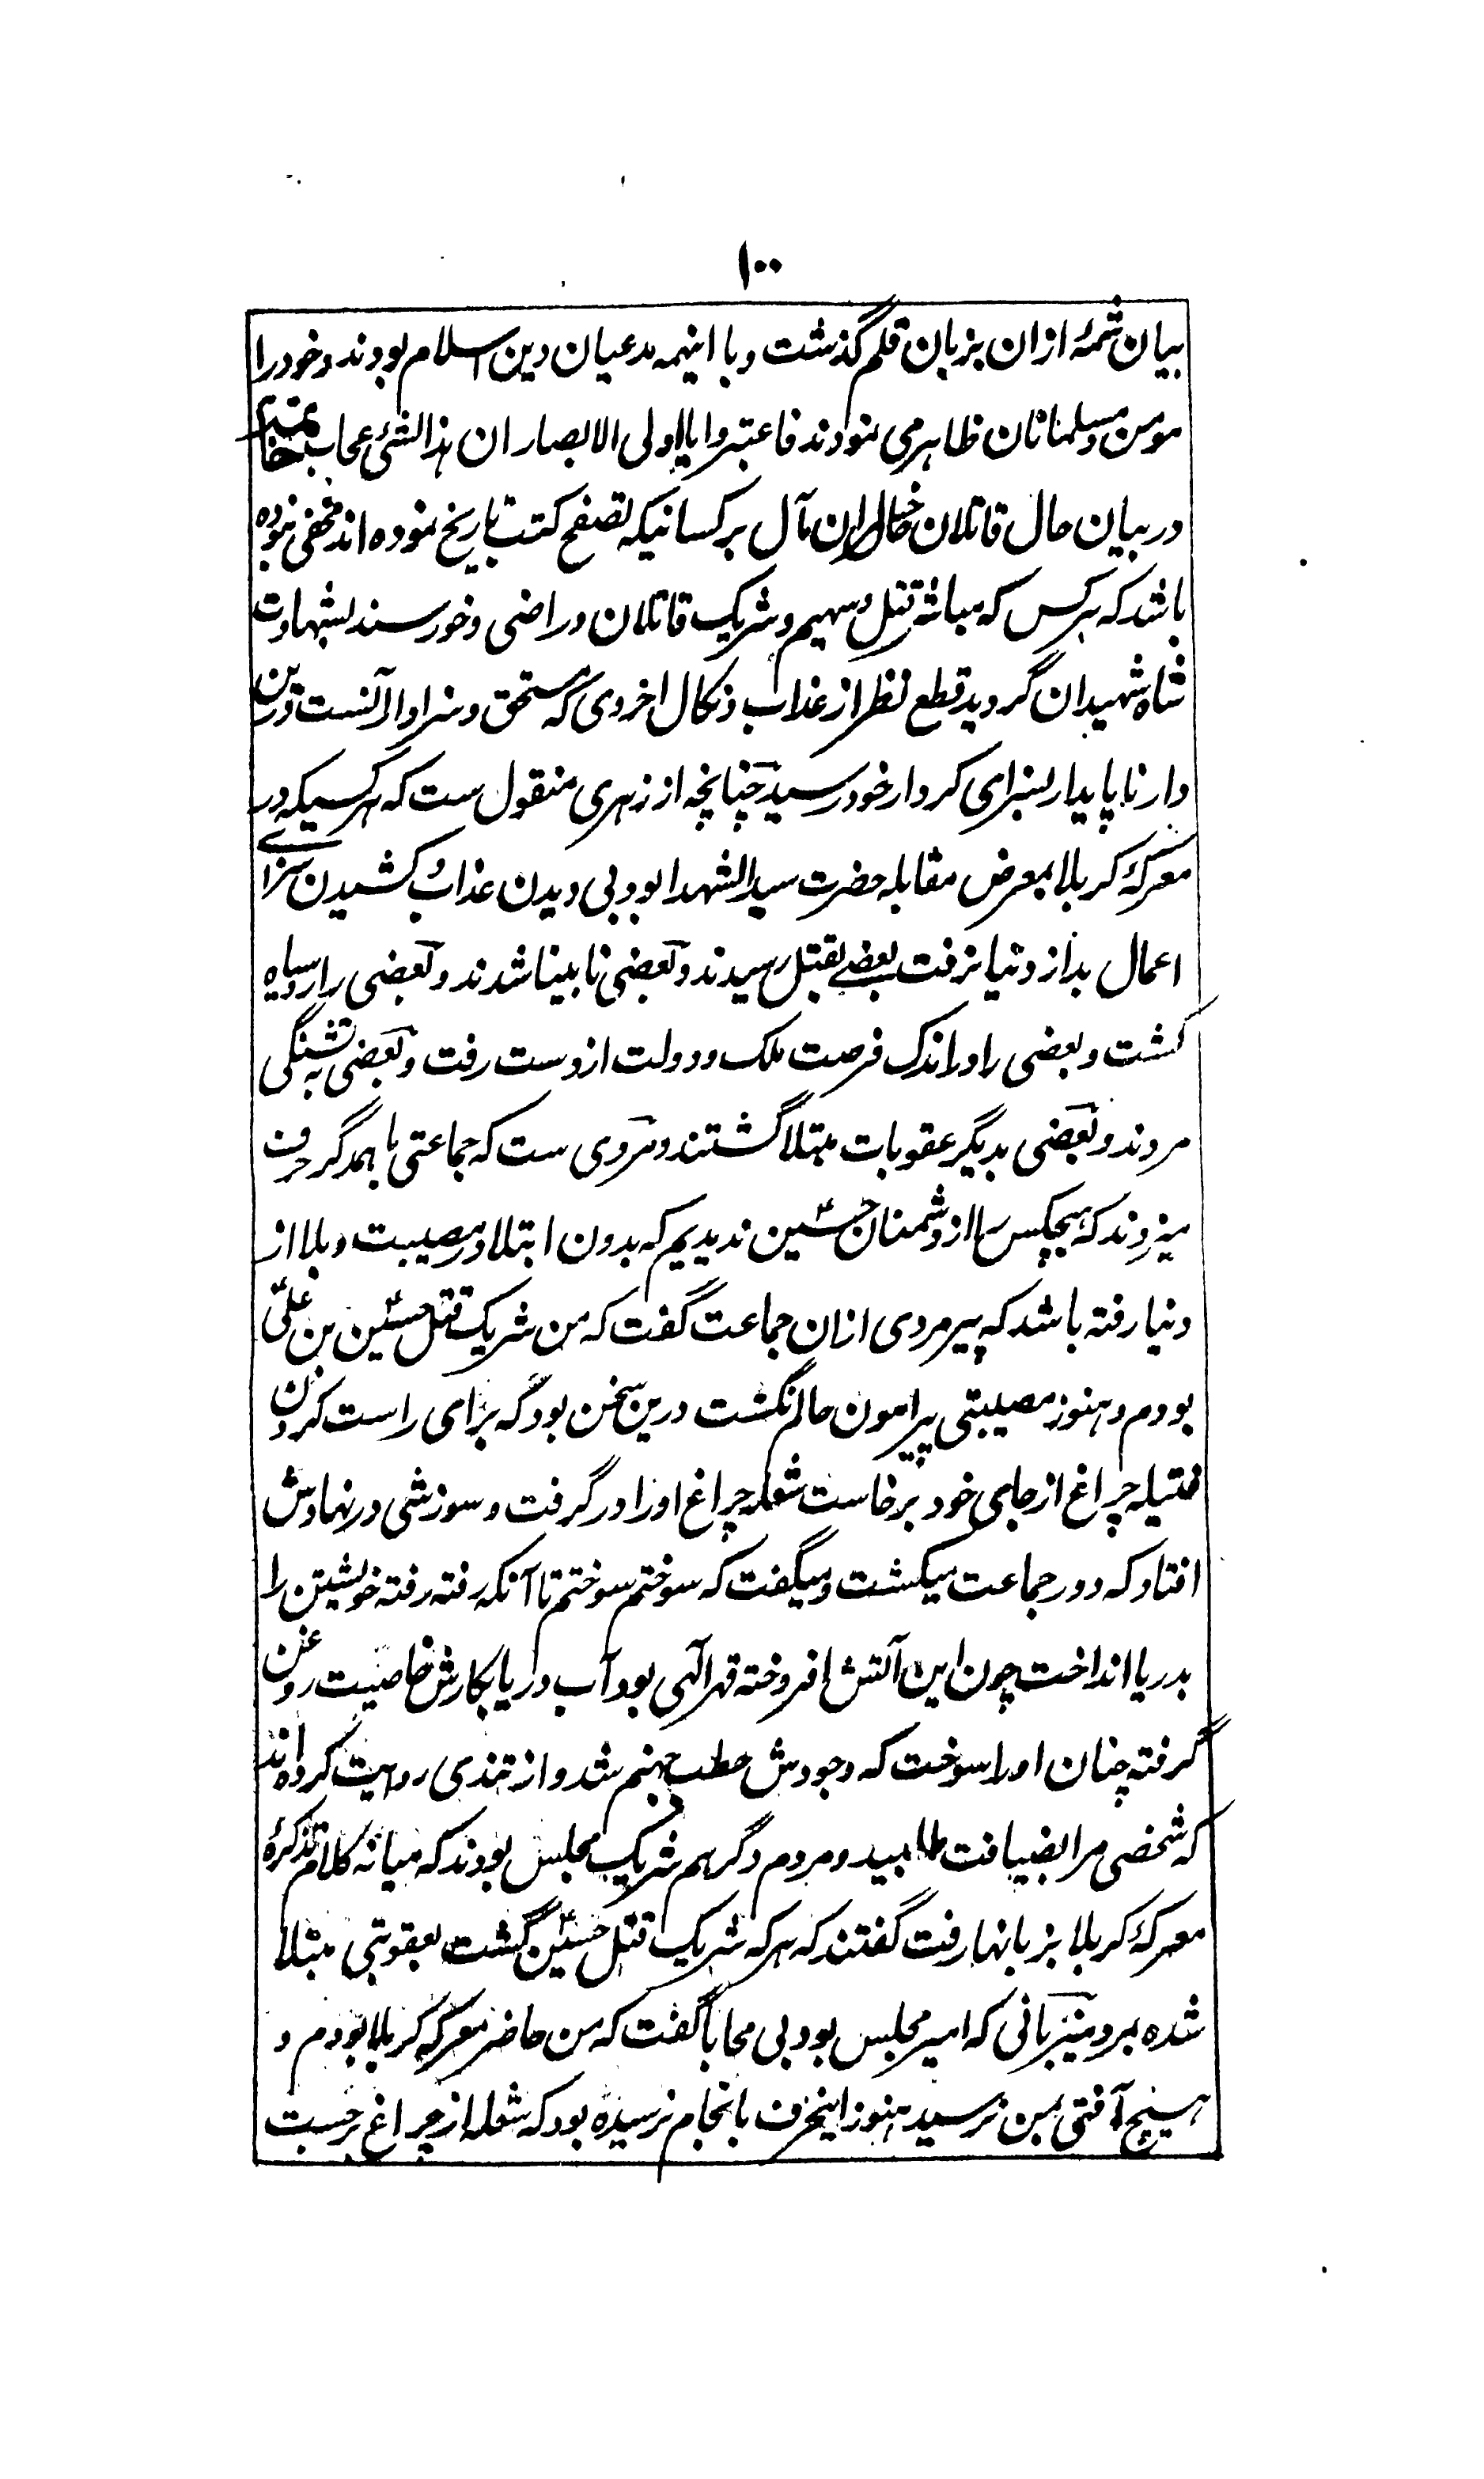 ۱۰۰
بیان شمهٔ ازان بزبان قلم گذشت و با اینهمه مدعیان دین اسلام بودند و خود را
مومن و مسلمانان ظاهر می نمودند فاعتبروا یا اولی الابصار ان هذا لشئ عجاب
در بیان حال قاتلان خسران مآل بر کسانیکه تصفح کتب تاریخ نموده اند مخفی نبوده
باشد که هر کس که مباشر قتل و سهیم و شریک قاتلان و راضی و خورسند بشهادت
شاه شهیدان گردید قطع نظر از عذاب و نکال اخروی که مستحق و سزاوار آنست درین
دار ناپایدار بسزای کردار خود رسید چنانچه از زهری منقول ست که هر کسیکه در
معرکهٔ کربلا بمعرض مقابله حضرت سید الشهدا بود بی دیدن عذاب و کشیدن سزاے
اعمال بد از دنیا نرفت بعضے بقتل رسیدند و بعضی نابینا شدند و بعضی را رو سیاه
گشت و بعضی را در اندک فرصت ملک و دولت از دست رفت و بعضی به تشنگی
مردند و بعضی بدیگر عقوبات مبتلا گشتند و مروی ست که جماعتی با همدگر حرف
میزدند که هیچکس را از دشمنان حسینؑ ندیدیم که بدون ابتلا در مصیبت و بلا از
دنیا رفته باشد که پیر مردی ازان جماعت گفت که من شریک قتل حسینؑ بن علیؑ
بودم و هنوز مصیبتی پیرامون حالم نگشت درین سخن بود که برای راست کردن
فتیله چراغ از جای خود برخاست شعله چراغ او را در گرفت و سوزشی در نهادش
افتاد که دور جماعت میگشت و میگفت که سوختم سوختم تا آنکه رفته رفته خویشتن را
بدریا انداخت چون این آتش افروخته قهر الهی بود آب دریا بکارش خاصیت روغن
گرفته چنان او را سوخت که وجودش حطب جهنم شد و از تمذی روایت کرده اند
که شخصی مرا بضیافت طلبید و مردم دگر هم شریک مجلس بودند که میانه کلام تذکرهٔ
معرکهٔ کربلا بزبانها رفت گفتند که هر که شریک قتل حسینؑ گشت بعقوبتی مبتلا
شده بمرد میزبانی که امیر مجلس بود بی محابا گفت که من حاضر معرکه کربلا بودم و
هیچ آفتی بمن نرسید هنوز اینحرف بانجام نرسیده بود که شعله از چراغ برجست